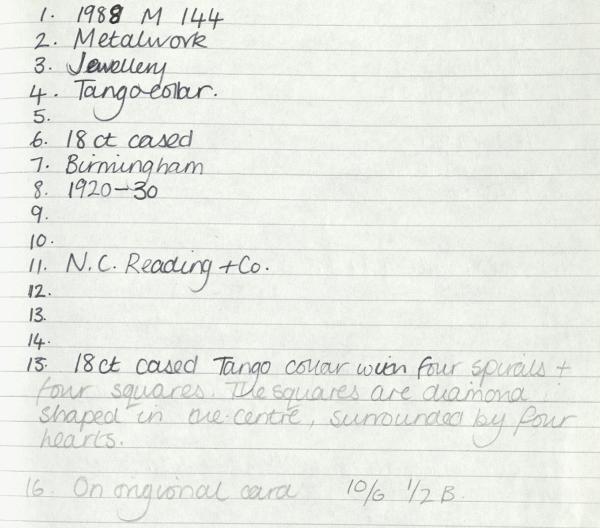 1. 1988 M 144
2. Metalwork
3. Jewellery
4. Tango collar.
5.
6. 18 ct cased
7. Birmingham
8. 1920-30
9.
10.
11. N.C. Reading + Co.
12.
13.
14.
15. 18ct cased Tango collar with four spirals +
four squares. The squares are diamond
shaped in the centre, surrounded by four
hearts.
16. On origional card 10/6 1/2 B.